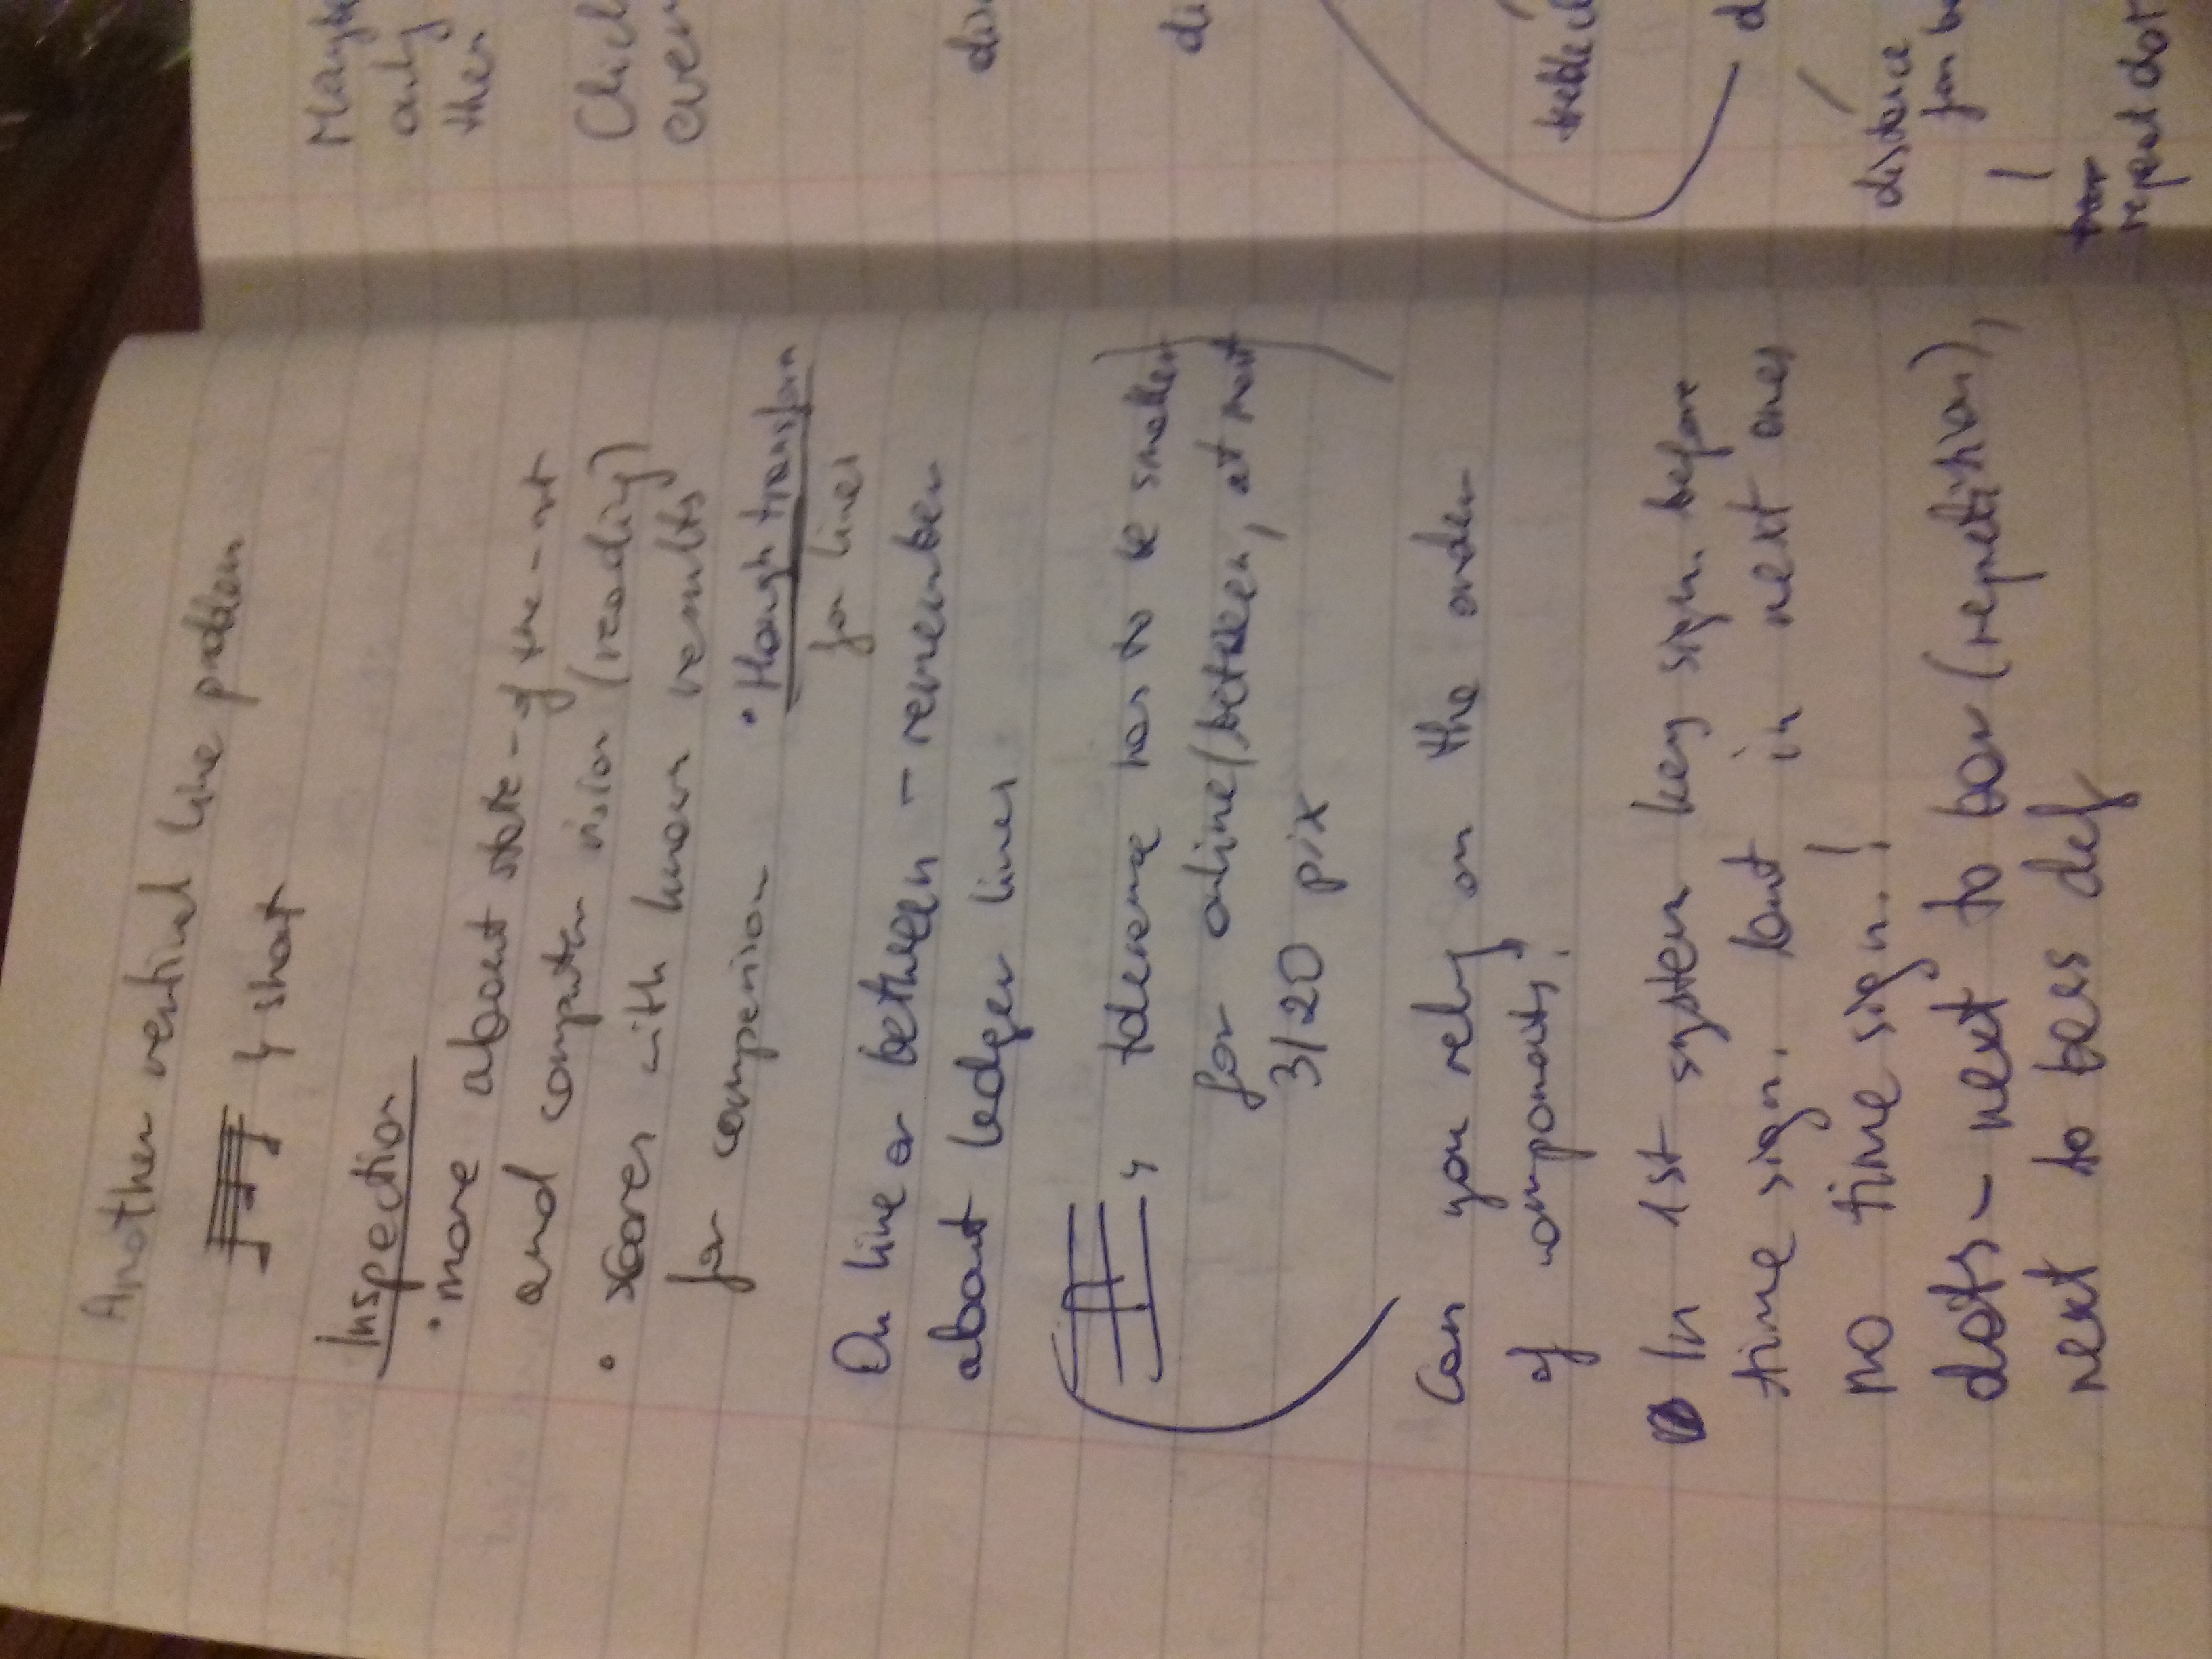 Another vertical line problem
↳ short
Inspection
• more about state-of the-art
and computer vision (reading)
• scores with known results
for comparison
• Hough transform
for lines
On line or between – remember
about ledger lines
↳ tolerance has to be smaller
for online/between, at most
3/20 pix
Can you rely on the order
of components?
In 1st system key sign. before
time sign. but in next ones
no time sign.!
dots – next to bar (repetition),
next to bass clef
Maybe
only
then
distance
repeat dot